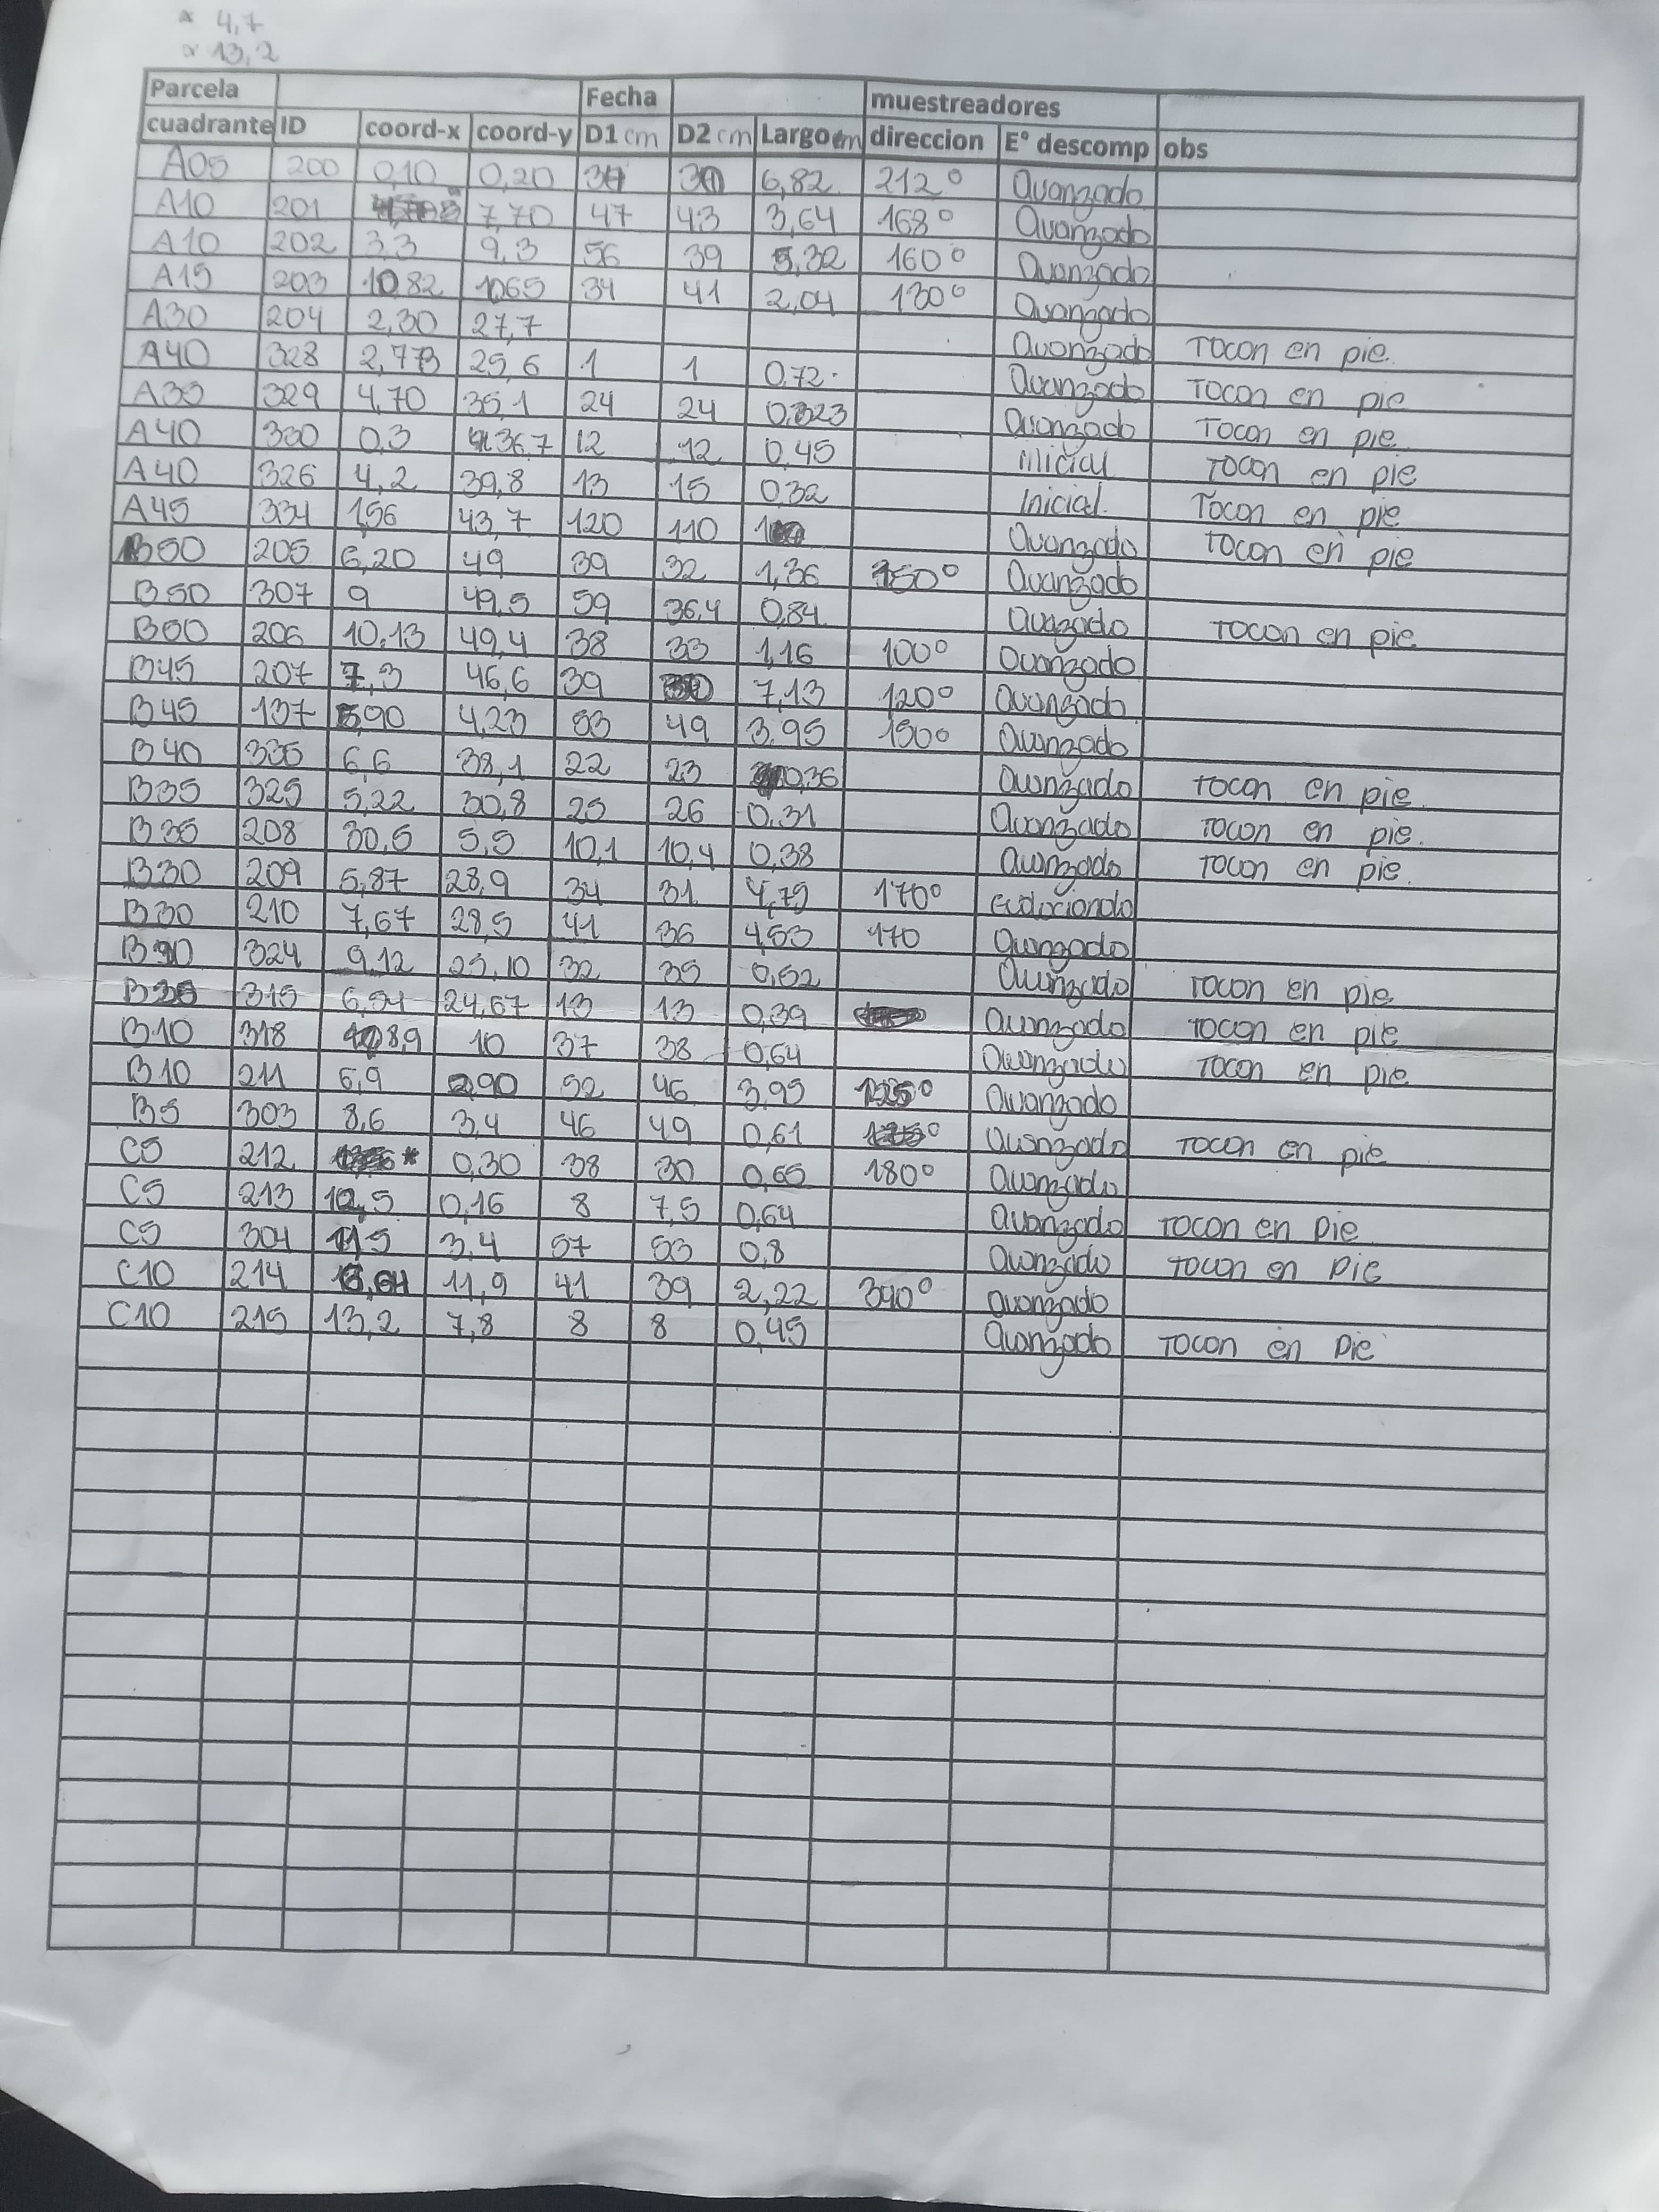 * 4,7
* 13,2
Parcela Fecha muestreadores
cuadrante ID coord-x coord-y D1 cm D2 cm Largo m direccion E° descomp obs
A05 200 0,10 0,20 6,82 212° Avanzado
A10 201 7,70 47 43 3,64 168° Avanzado
A10 202 3,3 9,3 56 39 5,32 160° Avanzado
A15 203 10,82 1065 34 41 2,04 130° Avanzado
A30 204 2,30 27,7 Avanzado Tocon en pie.
A40 328 2,773 25,6 1 1 0,72. Avanzado Tocon en pie
A35 329 4,70 35,1 24 24 Avanzado Tocon en pie
A40 330 0,3 36,7 12 12 0,45 inicial Tocon en pie
A40 326 4,2 39,8 13 15 0,32 inicial. Tocon en pie
A45 334 1,56 43,7 120 110 Avanzado Tocon en pie
B50 205 6,20 49 39 32 1,36 150° Avanzado
B50 307 9 49,5 59 36,4 0,84 Avazado Tocon en pie
B50 206 10,13 49,4 38 33 1,16 100° Avanzado
B45 207 7,3 46,6 39 7,13 120° Avanzado
B45 137 5,90 4,23 53 49 3,95 150° Avanzado
B40 335 6,6 38,1 22 23 0,36 Avanzado Tocon en pie.
B35 325 5,22 30,8 25 26 0,31 Avanzado Tocon en pie.
B35 208 30,5 5,5 10,1 10,4 0,38 Avanzado Tocon en pie.
B30 209 5,87 28,9 34 31 4,79 170°
B30 210 7,67 28,5 41 36 4,53 170 Avanzado
324 9,12 25,10 32 35 0,52 Avanzado Tocon en pie
315 6,54 24,67 13 13 0,39 Avanzado Tocon en pie
B10 318 8,9 10 37 38 0,64 Avanzado Tocon en pie
B10 211 6,9 2,90 52 46 3,95 Avanzado
B5 303 8,6 3,4 46 49 0,61 Avanzado Tocon en pie
C5 212 * 0,30 38 30 0,65 180° Avanzado
C5 213 12,5 0,16 8 7,5 0,64 Avanzado Tocon en pie
C5 304 11,5 3,4 57 53 0,8 Avanzado Tocon en pie
C10 214 11,9 41 39 2,22 340° avanzado
C10 215 13,2 7,8 8 8 0,45 Avanzado Tocon en pie